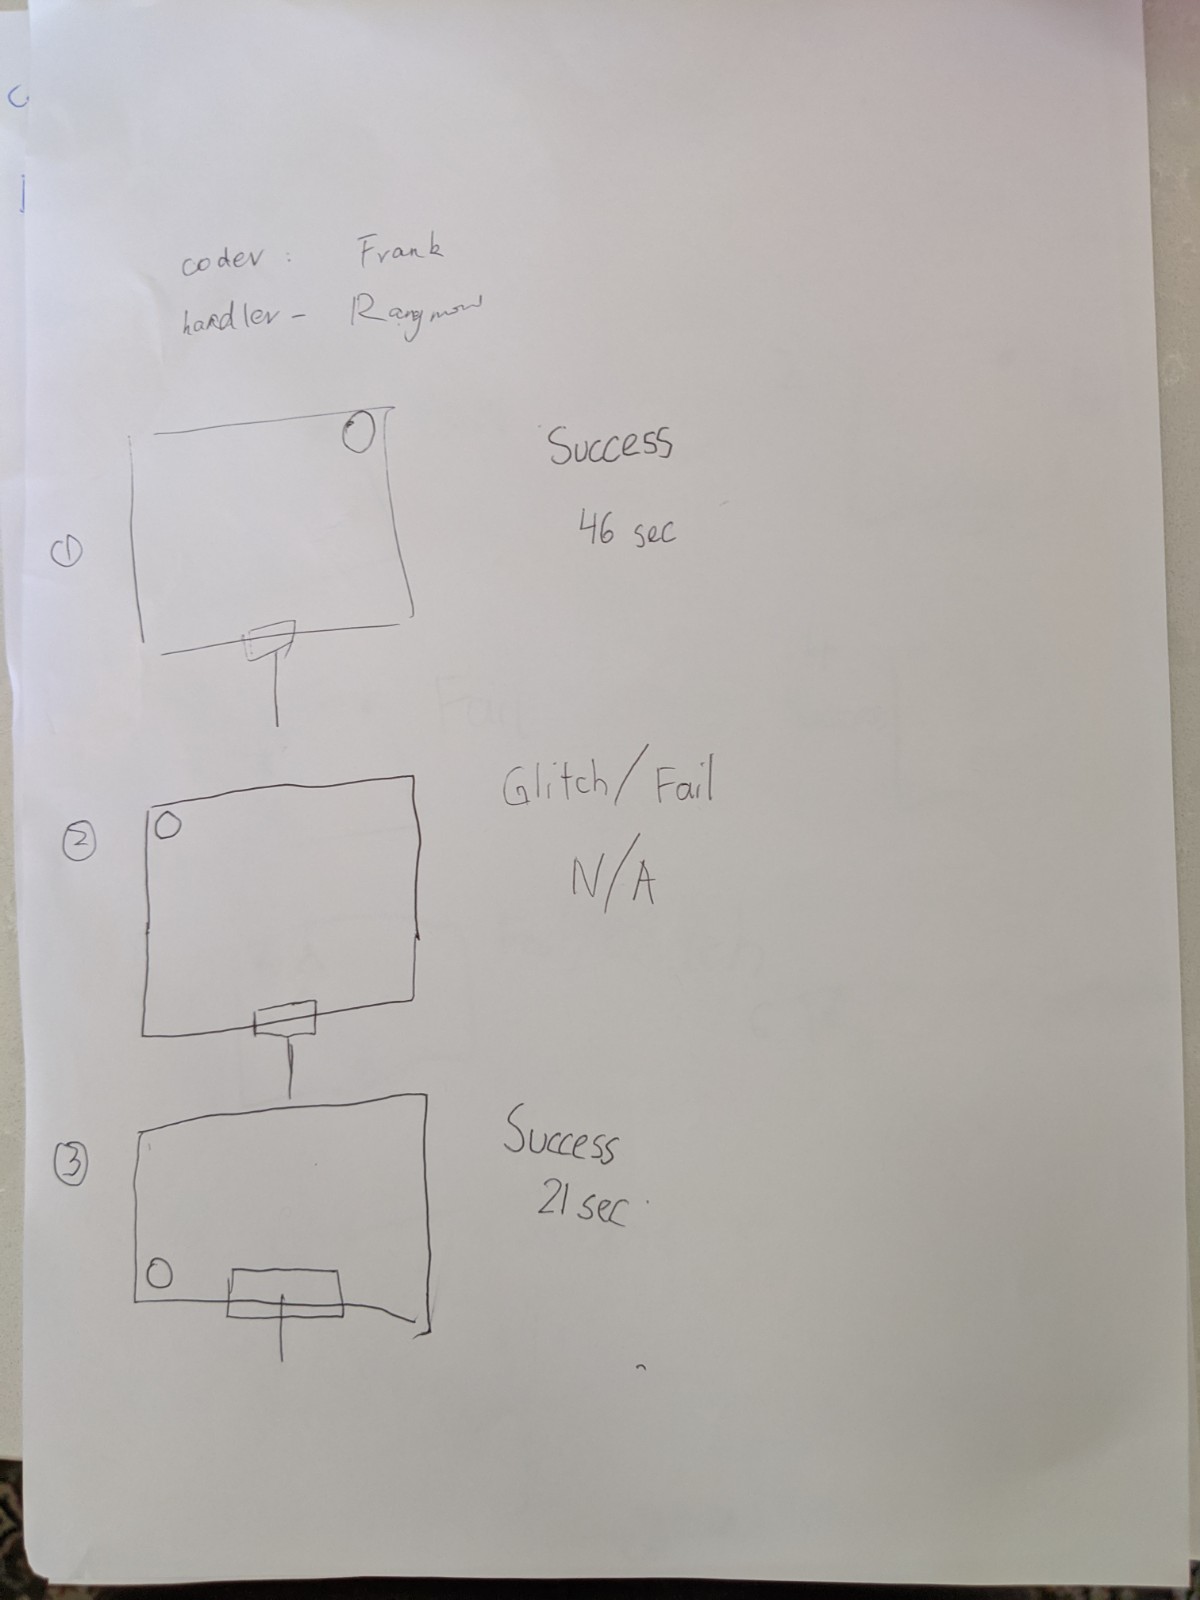 coder : Frank
handler -
① Success
46 sec
② Glitch/Fail
N/A
③ Success
21 sec